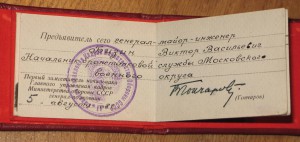 Предъявитель сего генерал-майор-инженер
Виктор Васильевич
Начальник службы Московского
военного округа
Первый заместитель начальника
Главного управления кадров
Министерства обороны СССР
генерал-
5 августа
(Гончаров)